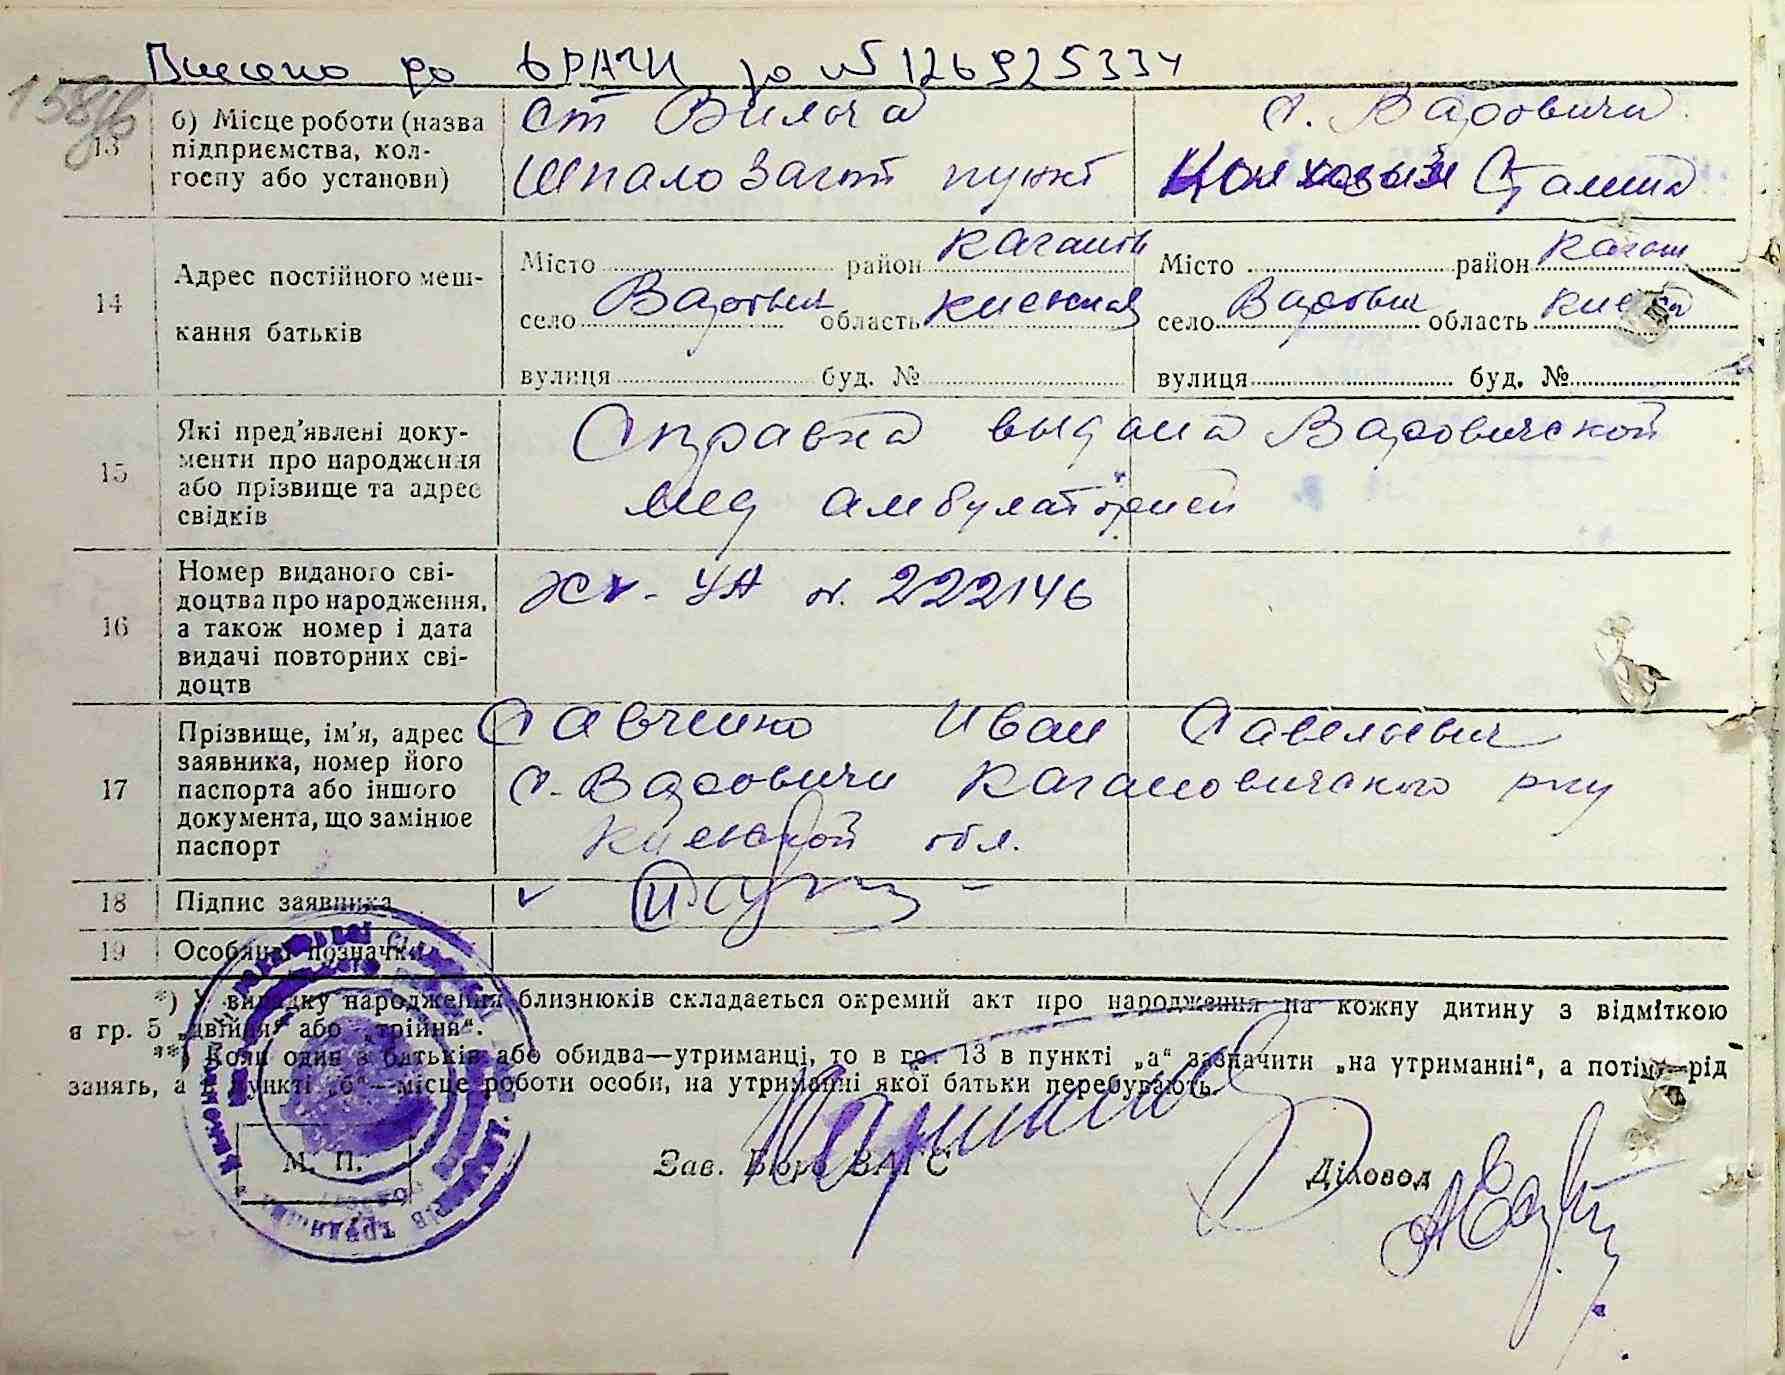 Внесено до ДРАЦС за № 126925334
158/в
13
б) Місце роботи (назва підприємства, кол-
госпу або установи)
ст Вильча
с. Вадовичи
Шпало Загот пункт
Сталина
14
Адрес постійного меш-
кання батьків
Місто район Каганов
село Вадович область Киевская
вулиця буд. №
Місто район Каган
село Вадович область
вулиця буд. №
15
Які пред’явлені доку-
менти про народження
або прізвище та адрес
свідків
Справка выдана Вадовичской
мед амбулаторией
16
Номер виданого сві-
доцтва про народження,
а також номер і дата
видачі повторних сві-
доцтв
УА н. 222146
17
Прізвище, ім’я, адрес
заявника, номер його
паспорта або іншого
документа, що замінює
паспорт
Савченко Иван Савельевич
с. Вадовичи Кагановичского р-ну
Киевской обл.
18
Підпис заявника
19
Особливі позначки
*) У випадку народження близнюків складається окремий акт про народження на кожну дитину з відміткою
в гр. 5 „двійня“ або „трійня“.
**) Коли один з батьків або обидва—утриманці, то в гр. 13 в пункті „а“ зазначити „на утриманні“, а потім—рід
занять, а в пункті „б“—місце роботи особи, на утриманні якої батьки перебувають.
М. П.
Зав. Бюро ЗАГС
Діловод